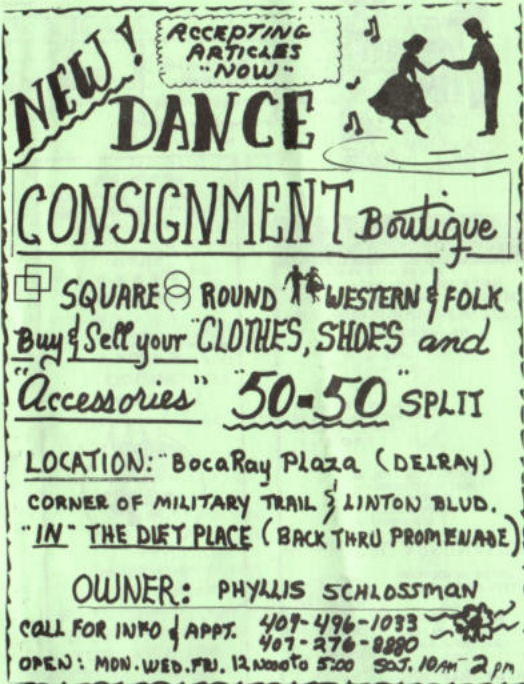 NEW!
ACCEPTING
ARTICLES
"NOW"
DANCE
CONSIGNMENT Boutique
SQUARE ROUND WESTERN & FOLK
Buy & Sell your "CLOTHES, SHOES and
"Accessories" "50-50" SPLIT
LOCATION: "BocaRay Plaza (DELRAY)
CORNER OF MILITARY TRAIL & LINTON BLVD.
"IN" THE DIET PLACE (BACK THRU PROMENADE)
OWNER: PHYLLIS SCHLOSSMAN
CALL FOR INFO & APPT. 407-496-1033
407-276-8880
OPEN: MON. WED. FRI. 12 NOON to 5:00 SAT. 10 AM 2 pm